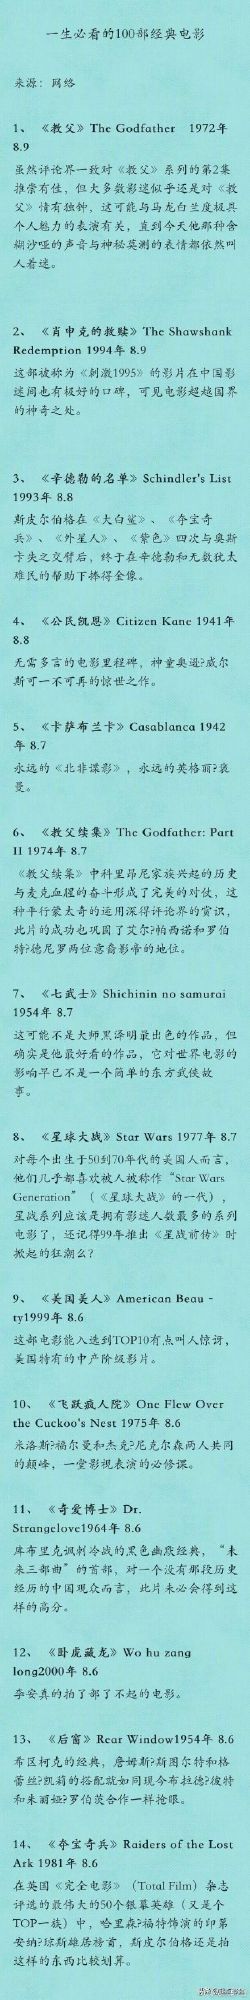 一生必看的100部经典电影
来源：网络
1、 《教父》The Godfather 1972年
8.9
虽然评论界一致对《教父》系列的第2集
推崇有佳，但大多数影迷似乎还是对《教
父》情有独钟，这可能与马龙白兰度极具
个人魅力的表演有关，直到今天他那种含
糊沙哑的声音与神秘莫测的表情都依然叫
人着迷。
2、 《肖申克的救赎》The Shawshank
Redemption 1994年 8.9
这部被称为《刺激1995》的影片在中国影
迷间也有极好的口碑，可见电影超越国界
的神奇之处。
3、 《辛德勒的名单》Schindler's List
1993年 8.8
斯皮尔伯格在《大白鲨》、《夺宝奇
兵》、《外星人》、《紫色》四次与奥斯
卡失之交臂后，终于在辛德勒和无数犹太
难民的帮助下捧得金像。
4、 《公民凯恩》Citizen Kane 1941年
8.8
无需多言的电影里程碑，神童奥逊?威尔
斯可一不可再的惊世之作。
5、 《卡萨布兰卡》Casablanca 1942
年 8.7
永远的《北非谍影》，永远的英格丽?褒
曼。
6、 《教父续集》The Godfather: Part
II 1974年 8.7
《教父续集》中科里昂尼家族兴起的历史
与麦克血腥的奋斗形成了完美的对仗，这
种平行蒙太奇的运用深得评论界的赏识，
此片的成功也巩固了艾尔?帕西诺和罗伯
特?德尼罗两位意裔影帝的地位。
7、 《七武士》Shichinin no samurai
1954年 8.7
这可能不是大师黑泽明最出色的作品，但
确实是他最好看的作品，它对世界电影的
影响早已不是一个简单的东方武侠故
事。
8、 《星球大战》Star Wars 1977年 8.7
对每个出生于50到70年代的美国人而言，
他们几乎都喜欢被人被称作“Star Wars
Generation”（《星球大战》的一代），
星战系列应该是拥有影迷人数最多的系列
电影了，还记得99年推出《星战前传》时
掀起的狂潮么？
9、 《美国美人》American Beau -
ty1999年 8.6
这部电影能入选到TOP10有点叫人惊讶，
美国特有的中产阶级影片。
10、 《飞跃疯人院》One Flew Over
the Cuckoo's Nest 1975年 8.6
米洛斯?福尔曼和杰克?尼克尔森两人共同
的颠峰，一堂影视表演的必修课。
11、 《奇爱博士》Dr.
Strangelove1964年 8.6
库布里克讽刺冷战的黑色幽默经典，“未
来三部曲”的首部，对一个没有那段历史
经历的中国观众而言，此片未必会得到这
样的高分。
12、 《卧虎藏龙》Wo hu zang
long2000年 8.6
李安真的拍了部了不起的电影。
13、 《后窗》Rear Window1954年 8.6
希区柯克的经典，詹姆斯?斯图尔特和格
蕾丝?凯莉的搭配就如同现今布拉德?彼特
和朱丽娅?罗伯茨合作一样抢眼。
14、 《夺宝奇兵》Raiders of the Lost
Ark 1981年 8.6
在英国《完全电影》（Total Film）杂志
评选的最伟大的50个银幕英雄（又是个
TOP一族）中，哈里森?福特饰演的印第
安纳?琼斯雄居榜首，斯皮尔伯格还是拍
这样的东西比较划算。